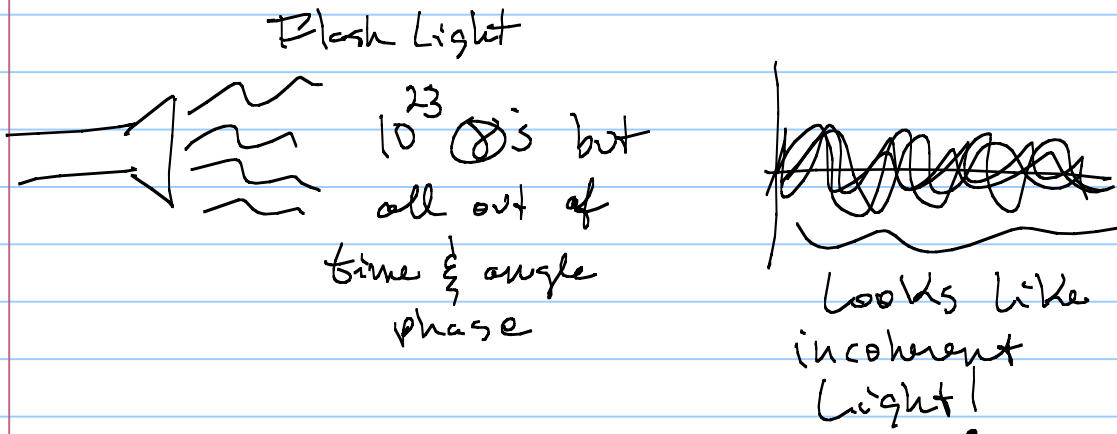 Flash Light
10^23 γ's but
all out of
time & angle
phase
Looks like
incoherent
Light!